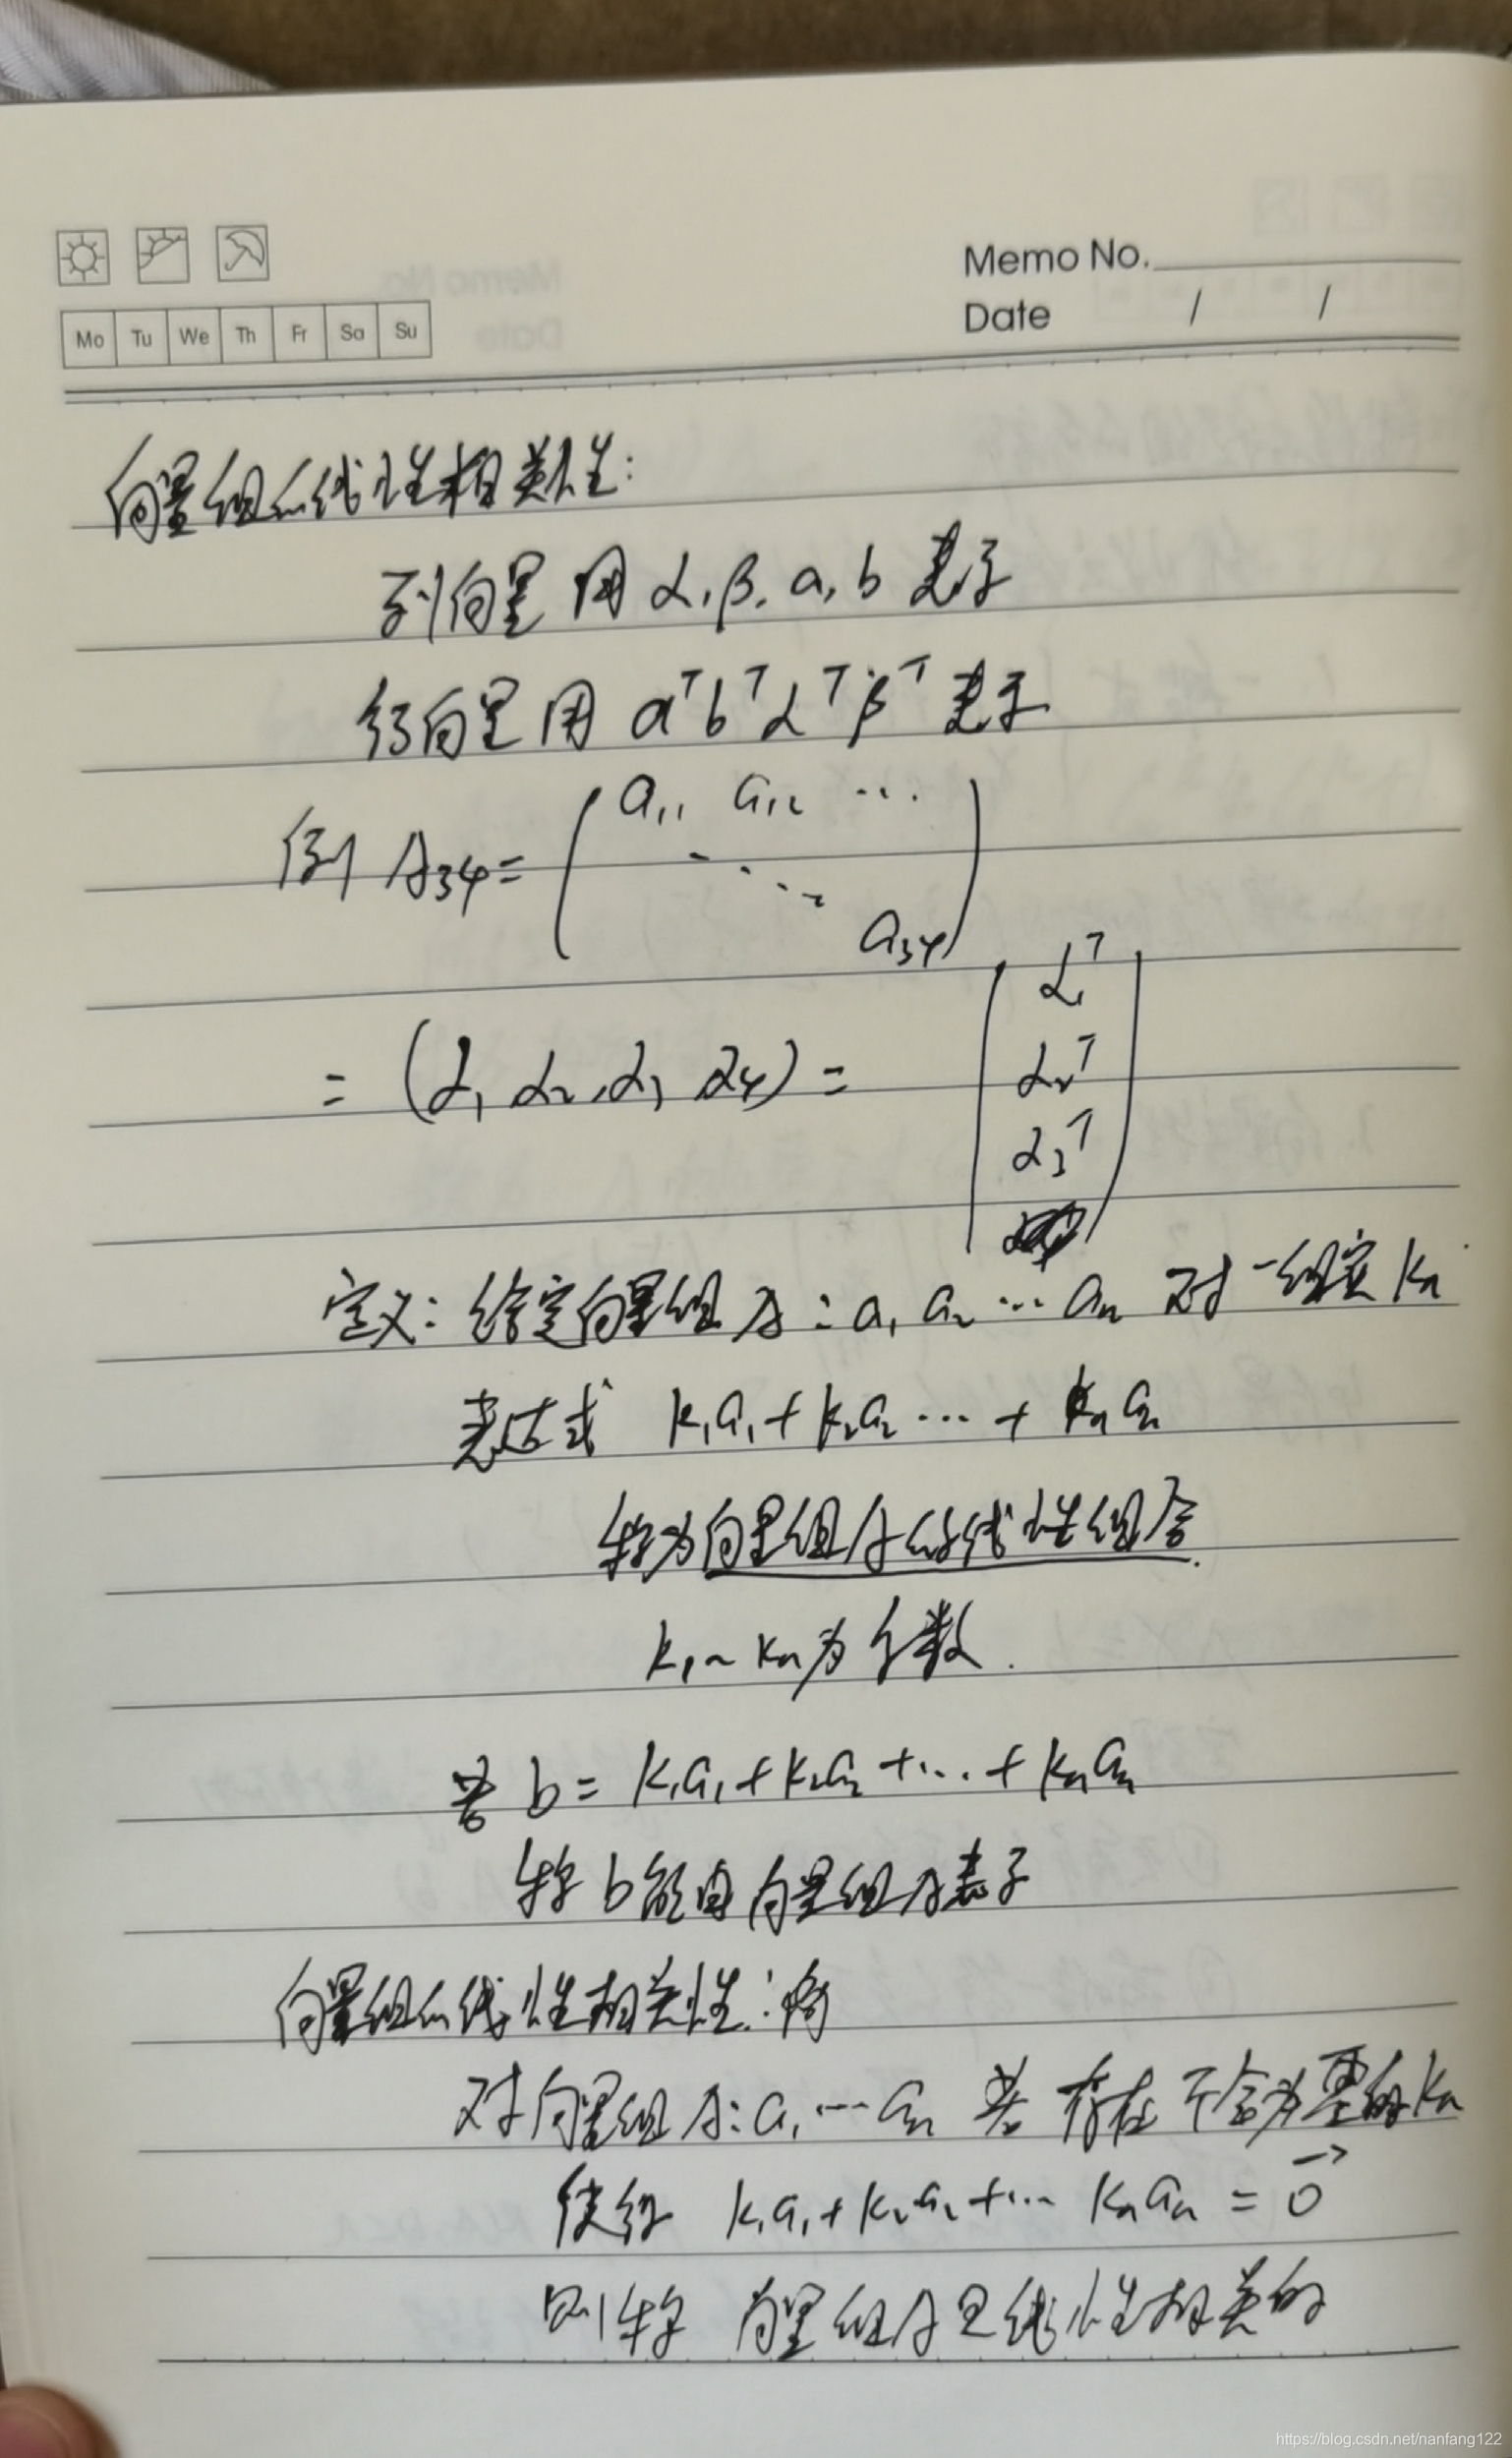 Memo No.
Date / /
Mo Tu We Th Fr Sa Su
向量组的线性相关性:
列向量 用 α, β, a, b 表示
行向量 用 aᵀ bᵀ αᵀ βᵀ 表示
例 A₃₄ = ( a₁₁ a₁₂ ⋯
⋱
a₃₄ )
= (α₁ α₂, α₃ α₄) = ( α₁ᵀ
α₂ᵀ
α₃ᵀ )
定义: 给定向量组 A: a₁ a₂ ⋯ aₙ 对一组实 kₙ
表达式 k₁a₁ + k₂a₂ ⋯ + kₙaₙ
称为向量组A的线性组合.
k₁ ~ kₙ为系数.
若 b = k₁a₁ + k₂a₂ + ⋯ + kₙaₙ
称 b 能由 向量组A表示
向量组的线性相关性:
对向量组 A: a₁ ⋯ aₙ 若 存在 不全为零的 kₙ
使得 k₁a₁ + k₂a₂ + ⋯ kₙaₙ = 0⃗
则称 向量组A是线性相关的
https://blog.csdn.net/nanfang122